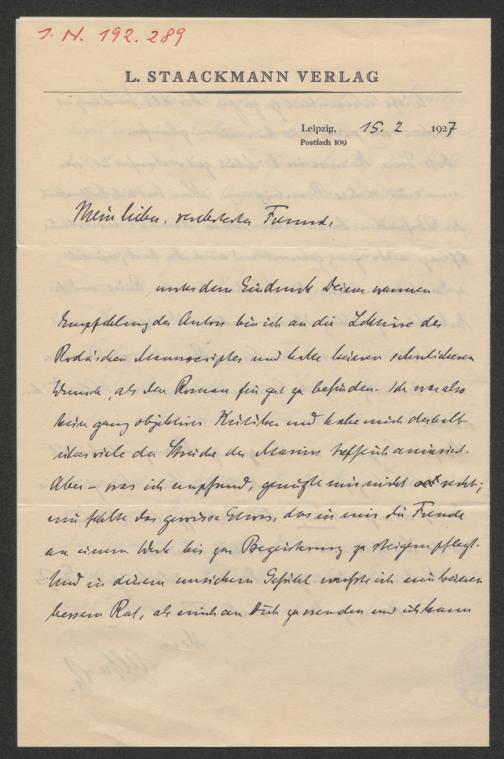 I. N. 192.289
L. STAACKMANN VERLAG
Leipzig, 15. 2 1927
Postfach 109
Mein lieber, verehrtester Freund,
unter dem Eindruck Deiner warmen
Empfehlung des Autors bin ich an die Lektüre des
Manuscriptes und hatte keinen sehnlicheren
Wunsch, als den Roman für gut zu befinden. Ich war also
kein ganz objektiver Kritiker und habe mich deshalb
über viele der Streiche des Marius trefflich amüsiert.
Aber – was ich empfand, genügte mir nicht recht;
mir fehlte das gewisse Etwas, das in mir die Freude
an einem Werk bis zur Begeisterung zu steigern pflegt.
Und in diesem unsichern Gefühl wusste ich mir keinen
bessern Rat, als mich an Dich zu wenden und ich kann